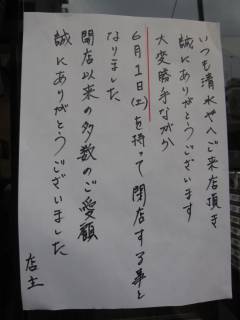 いつも清水やへご来店頂き
誠にありがとうございます
大変勝手ながら
6月1日(土)を持って閉店する事と
なりました
開店以来の多数のご愛顧
誠にありがとうございました
店主